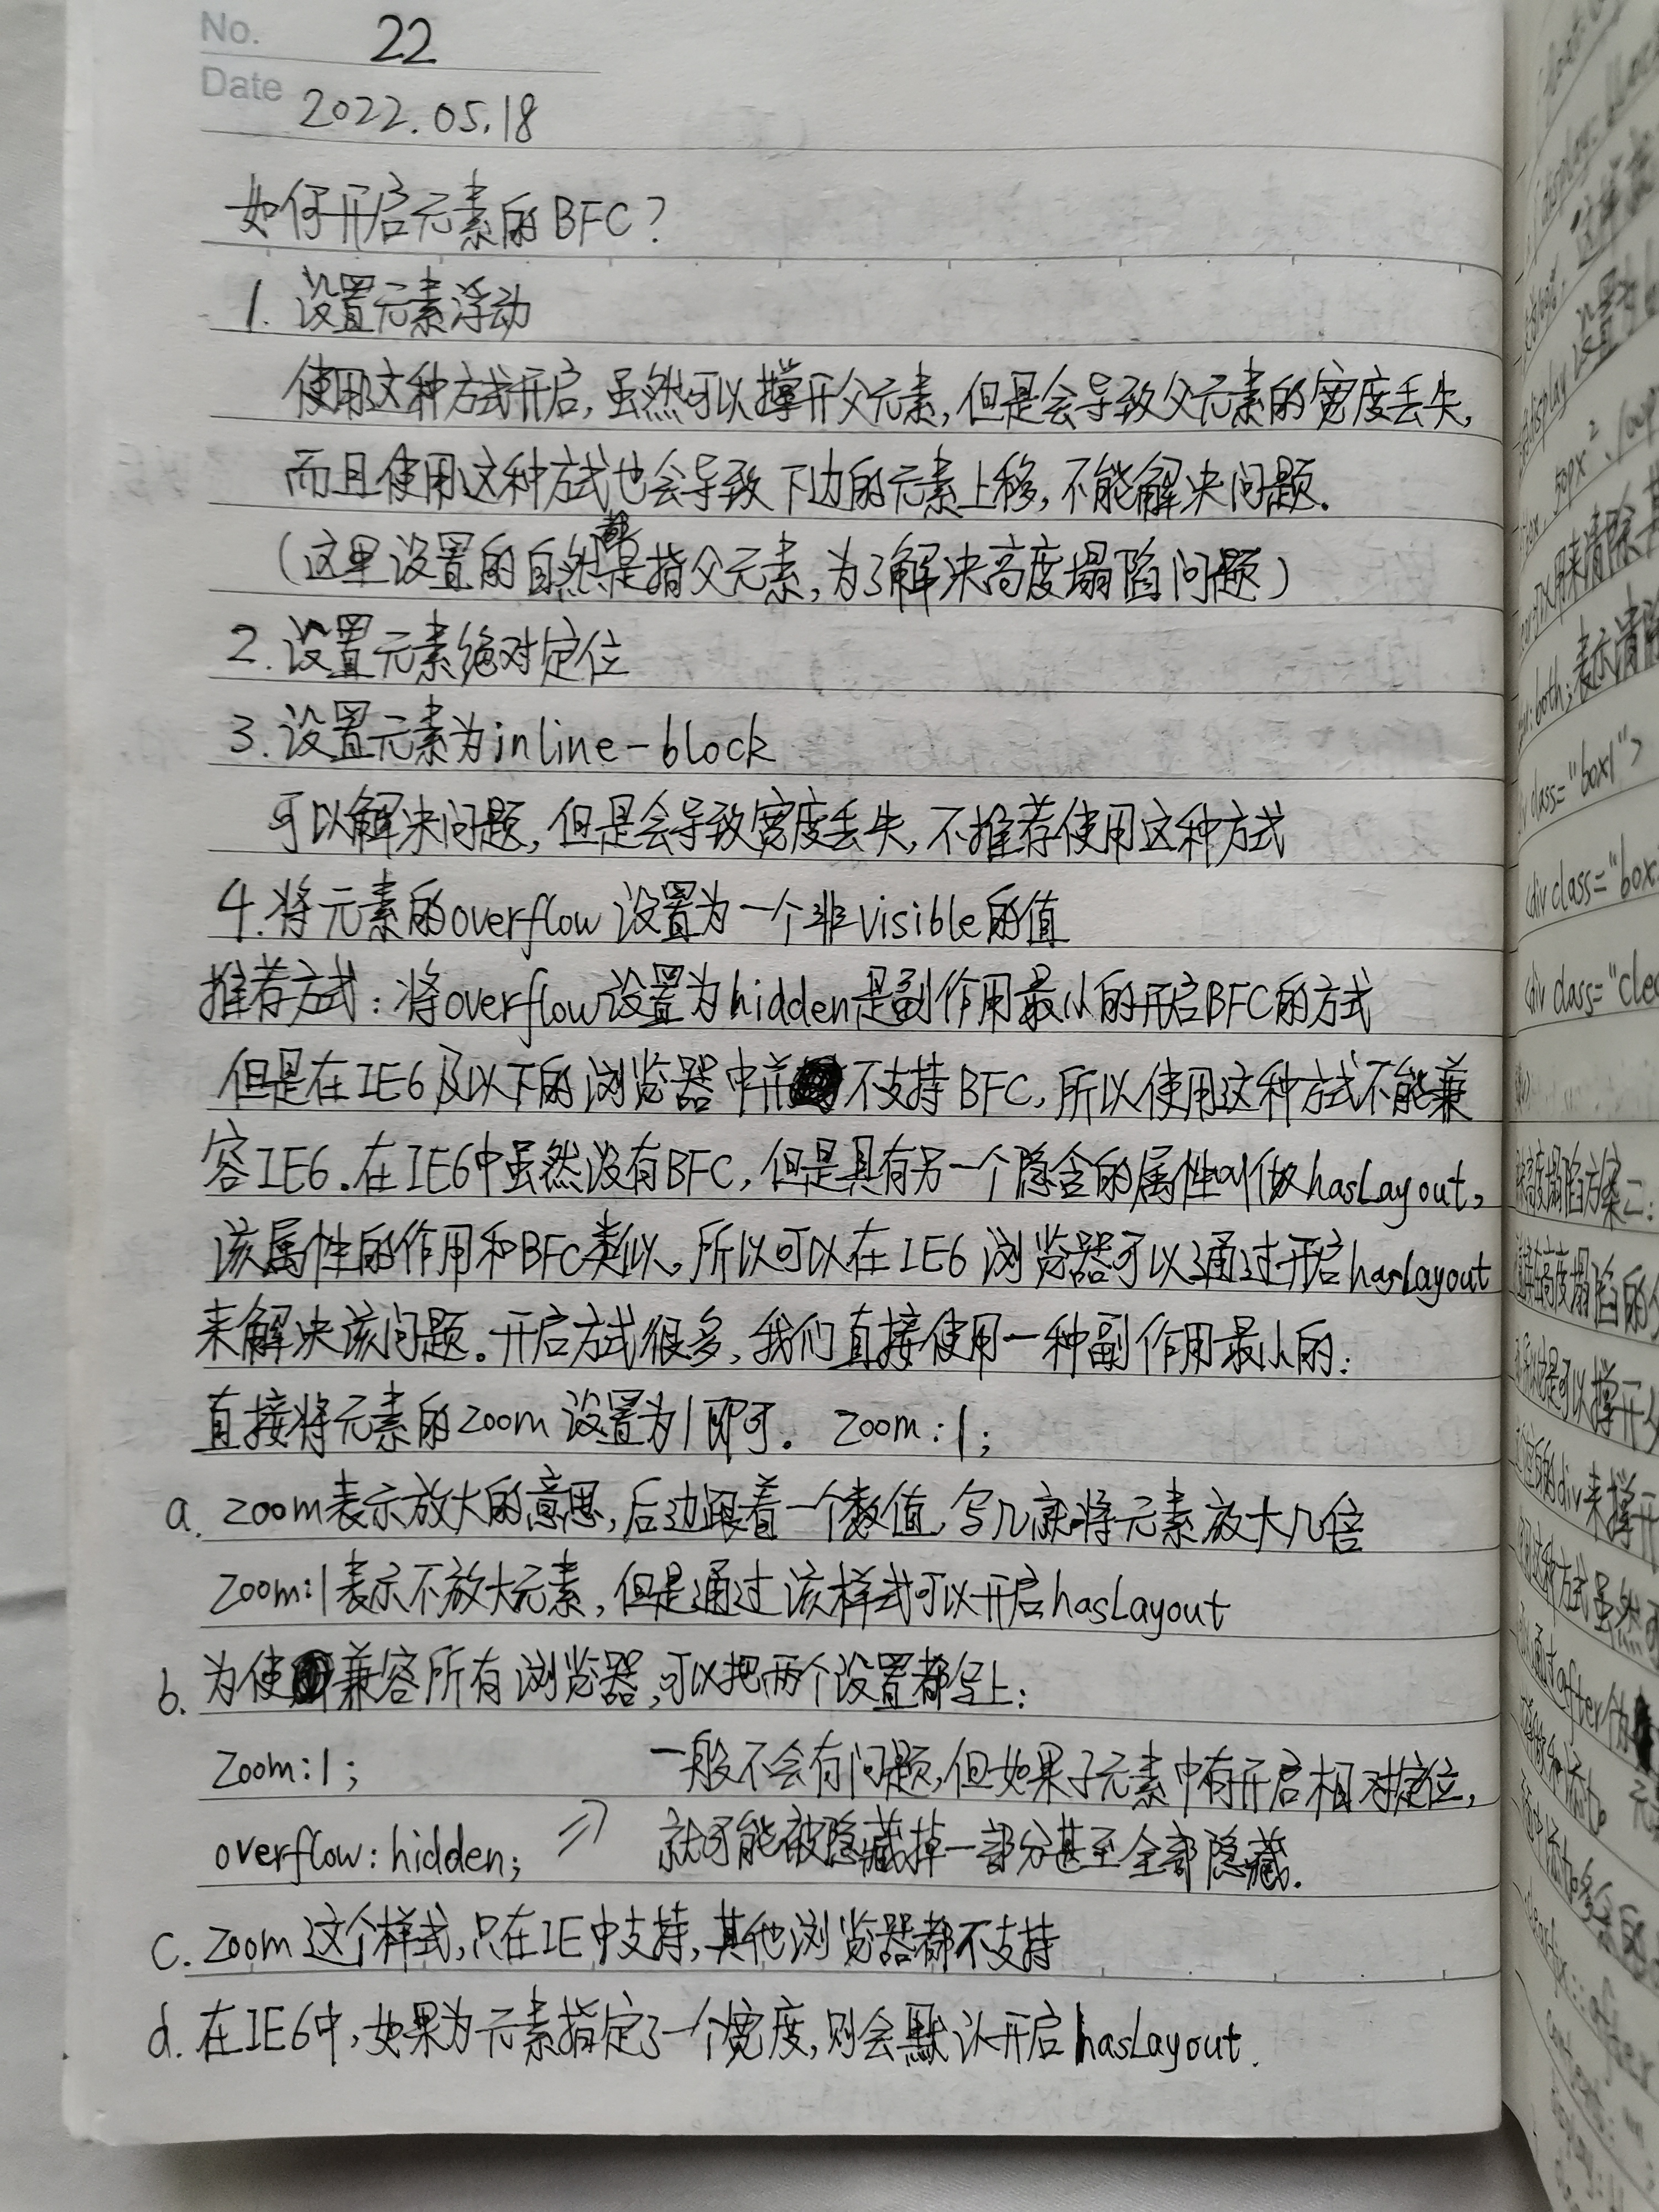 No. 22
Date 2022.05.18
如何开启元素的BFC？
1. 设置元素浮动
使用这种方式开启，虽然可以撑开父元素，但是会导致父元素的宽度丢失，
而且使用这种方式也会导致下边的元素上移，不能解决问题.
（这里设置的自然都是指父元素，为了解决高度塌陷问题）
2. 设置元素绝对定位
3. 设置元素为inline-block
可以解决问题，但是会导致宽度丢失，不推荐使用这种方式
4. 将元素的overflow设置为一个非visible的值
推荐方式：将overflow设置为hidden是副作用最小的开启BFC的方式
但是在IE6及以下的浏览器中并不支持BFC，所以使用这种方式不能兼
容IE6.在IE6中虽然没有BFC，但是具有另一个隐含的属性叫做hasLayout，
该属性的作用和BFC类似。所以可以在IE6浏览器可以通过开启hasLayout
来解决该问题。开启方式很多，我们直接使用一种副作用最小的：
直接将元素的zoom设置为1即可。 zoom:1;
a. zoom表示放大的意思，后边跟着一个数值，写几就将元素放大几倍
zoom:1表示不放大元素，但是通过该样式可以开启hasLayout
b. 为使兼容所有浏览器，可以把两个设置都写上：
zoom:1; 一般不会有问题，但如果子元素中有开启相对定位，
overflow:hidden; => 就可能被隐藏掉一部分甚至全部隐藏.
c. zoom这个样式，只在IE中支持，其他浏览器都不支持
d. 在IE6中，如果为元素指定了一个宽度，则会默认开启hasLayout.
class="box1">
<div class="box
<div class="clea